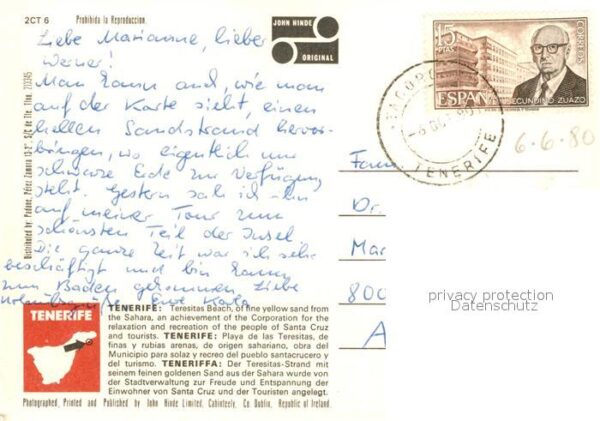 2CT 6
Prohibida la Reproduccion.
JOHN HINDE
ORIGINAL
15
PTAS
CORREOS
ESPAÑA
SECUNDINO ZUAZO
TENERIFE
6.6.80
Liebe Marianne, lieber
Werner!
Man kann auch, wie man
auf der Karte sieht, einen
hellen Sandstrand hervor-
bringen, wo eigentlich nur
schwarze Erde zur Verfügung
steht. Gestern sah ich ihn
auf meiner Tour zum
schönsten Teil der Insel
Die ganze Zeit war ich sehr
beschäftigt und bin kaum
zum Baden gekommen. Liebe
Fam
Dr.
Mar
800
A
privacy protection
Datenschutz
TENERIFE
TENERIFE: Teresitas Beach, of fine yellow sand from
the Sahara, an achievement of the Corporation for the
relaxation and recreation of the people of Santa Cruz
and tourists. TENERIFE: Playa de las Teresitas, de
finas y rubias arenas, de origen sahariano, obra del
Municipio para solaz y recreo del pueblo santacrucero y
del turismo. TENERIFFA: Der Teresitas-Strand mit
seinem feinen goldenen Sand aus der Sahara wurde von
der Stadtverwaltung zur Freude und Entspannung der
Einwohner von Santa Cruz und der Touristen angelegt.
Photographed, Printed and Published by John Hinde Limited, Cabinteely, Co Dublin, Republic of Ireland